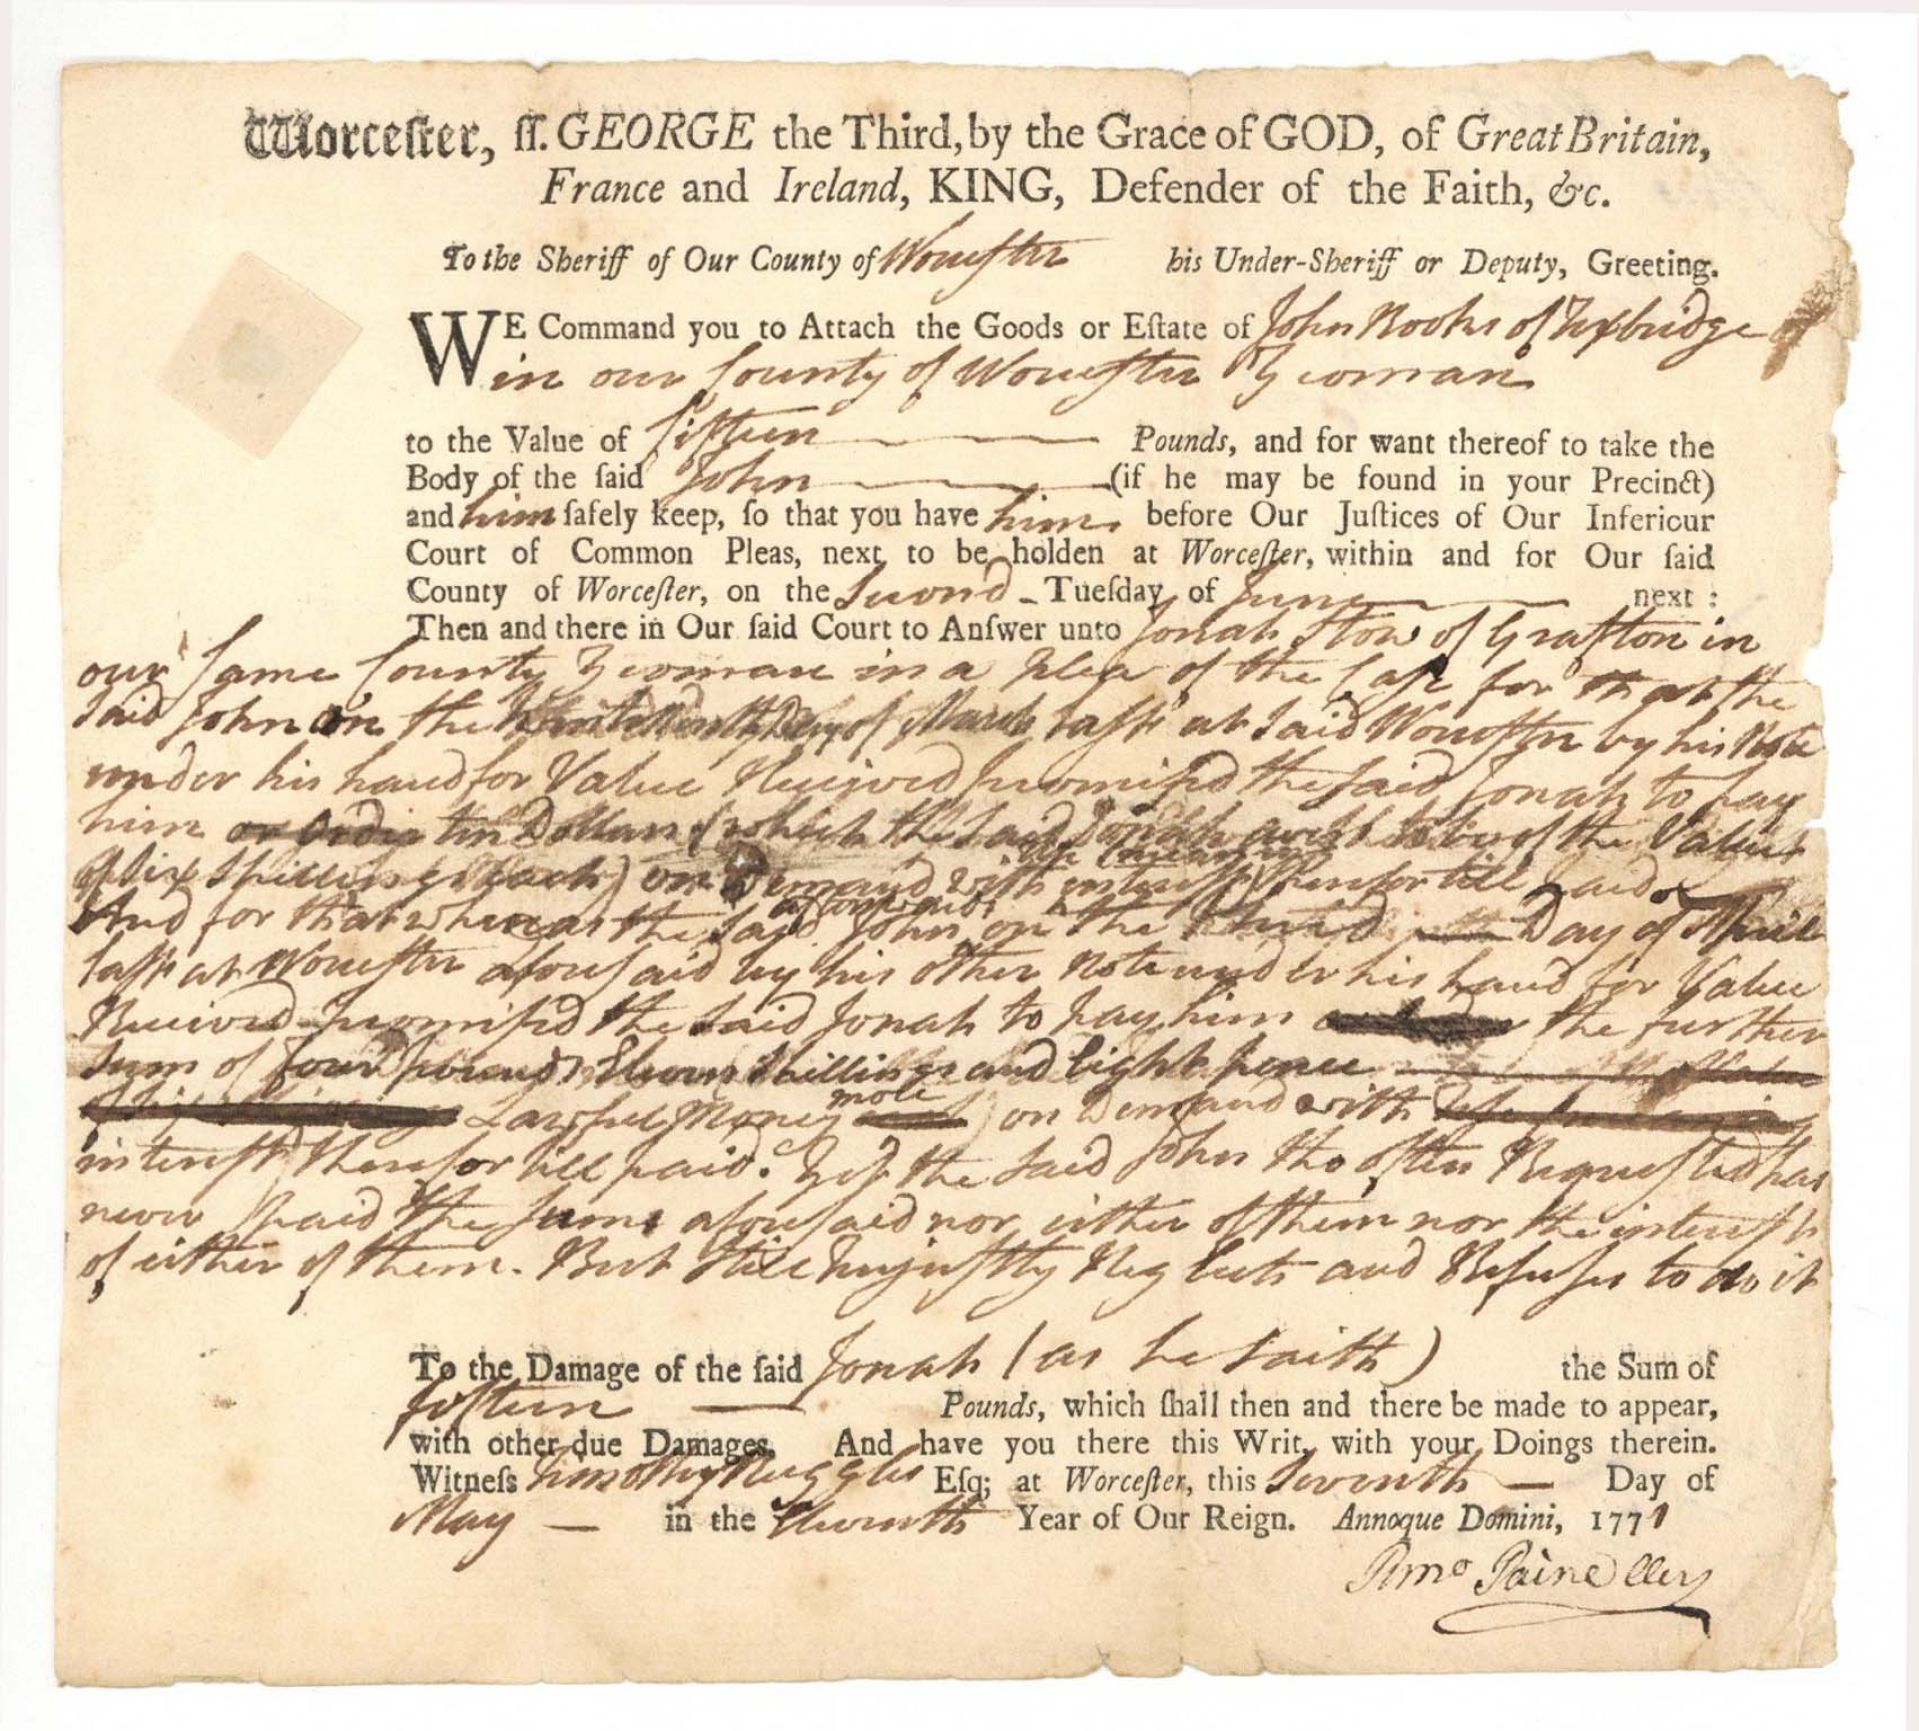 Worceſter, ſſ. GEORGE the Third, by the Grace of GOD, of Great Britain,
France and Ireland, KING, Defender of the Faith, &c.
To the Sheriff of Our County of Worcester his Under-Sheriff or Deputy, Greeting.
WE Command you to Attach the Goods or Eſtate of John Rooks of Uxbridge
in our County of Worcester Yeoman
to the Value of fifteen Pounds, and for want thereof to take the
Body of the ſaid John (if he may be found in your Precinct)
and him ſafely keep, ſo that you have him before Our Juſtices of Our Inferiour
Court of Common Pleas, next to be holden at Worceſter, within and for Our ſaid
County of Worceſter, on the Second Tueſday of June next :
Then and there in Our ſaid Court to Anſwer unto Jonah Stow of Grafton in
our Same County Yeoman in a Plea of the Case for that the
Said John on the Day of March last at Said Worcester by his Note
under his hand for Value Received promised the Said Jonah to pay
him or Order ten Dollars (which the Said Jonah to be of the Value
of Six Shillings Each) on Demand with interest therefor till paid
And for that whereas the Said John afterwards on the third Day of April
last at Worcester aforesaid by his other Note under his hand for Value
Received promised the Said Jonah to pay him the further
Sum of four pounds Eleven Shillings and Eight pence
Lawful Money more on Demand with
interest therefor till paid. Yet the Said John tho often Requested has
never paid the Sums aforesaid nor either of them nor the interest
of either of them. But Still unjustly Neglects and Refuses to do it
To the Damage of the ſaid Jonah (as he Saith) the Sum of
fifteen Pounds, which ſhall then and there be made to appear,
with other due Damages. And have you there this Writ, with your Doings therein.
Witneſs Timothy Ruggles Eſq; at Worceſter, this Seventh Day of
May in the Eleventh Year of Our Reign. Annoque Domini, 1771
Timo Paine Cler